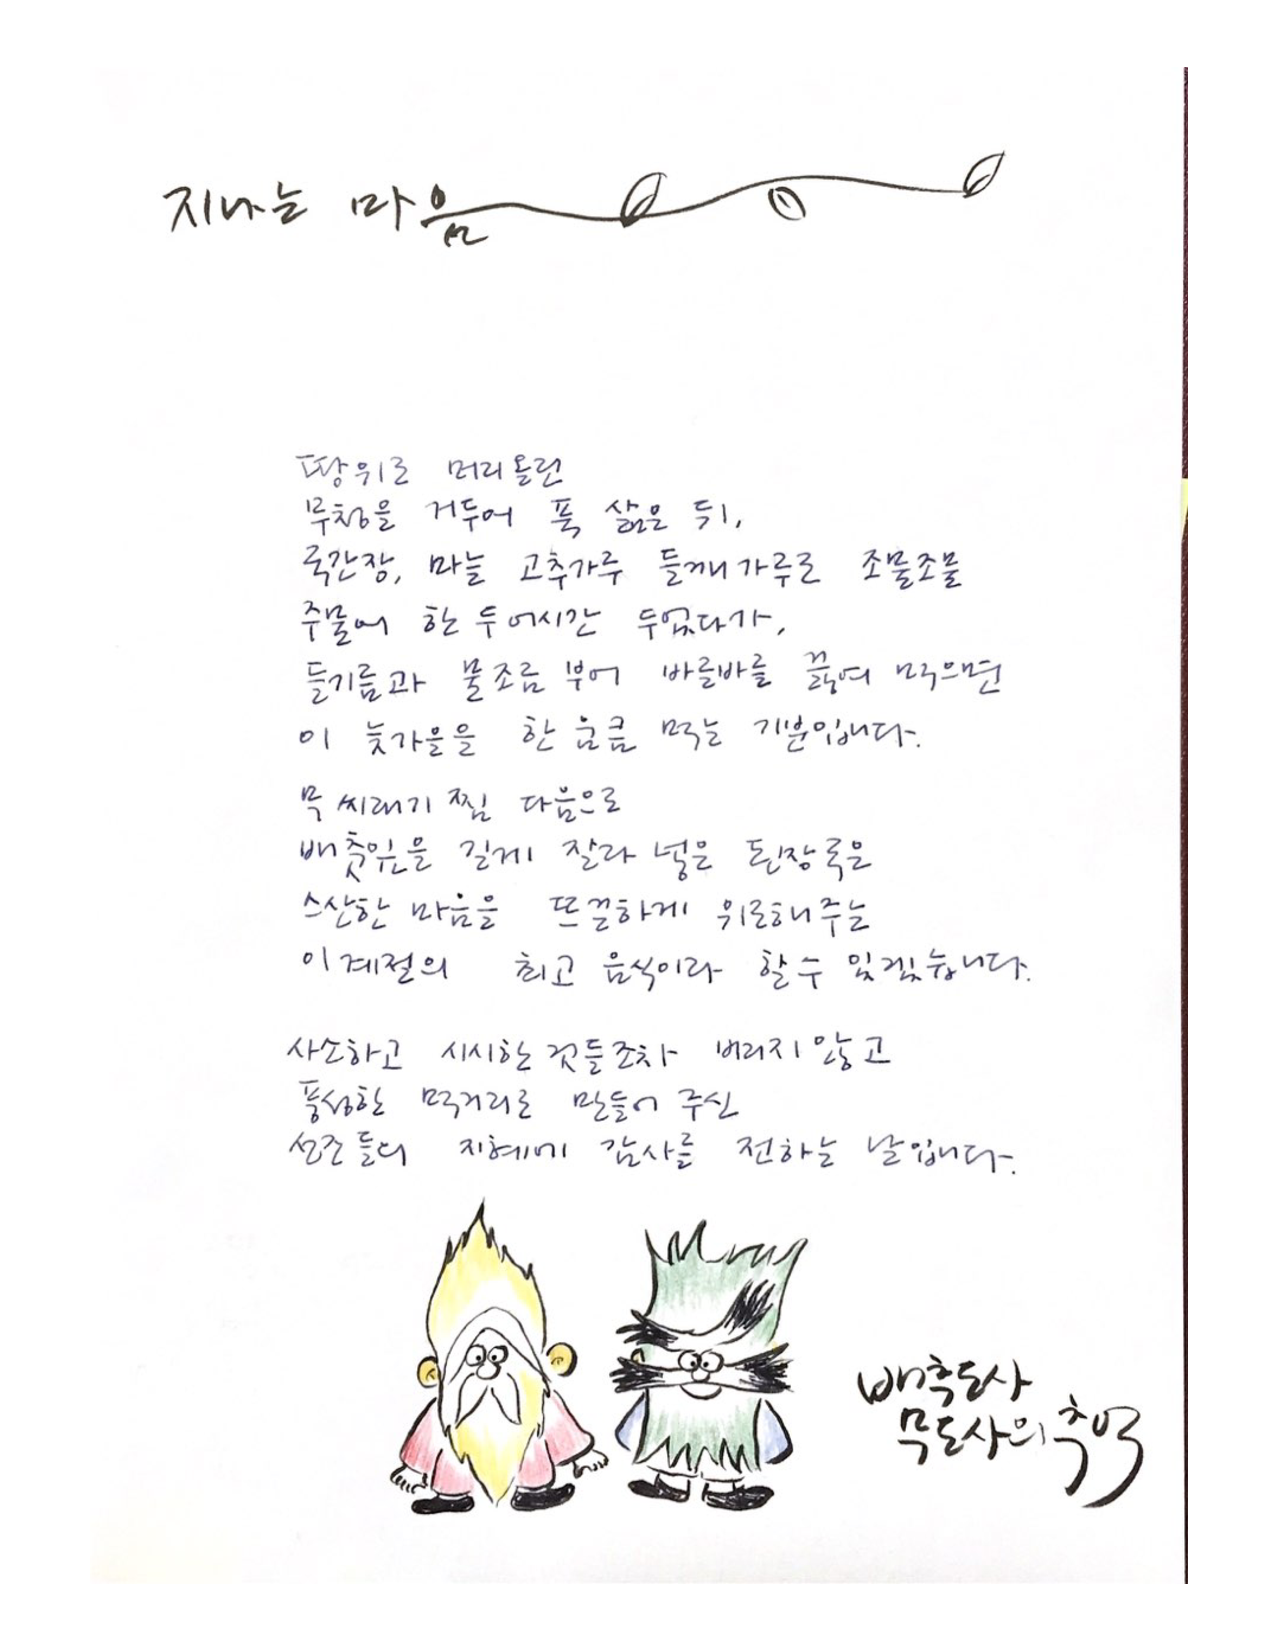 지나는 마음
땅위로 머리올린
무청을 거두어 푹 삶은 뒤,
국간장, 마늘 고추가루 들깨가루로 조물조물
주물어 한 두어시간 두었다가,
들기름과 물조름 부어 바를바를 끓여 먹으면
이 늦가을을 한 움큼 먹는 기분입니다.
무 씨래기 찜 다음으로
배춧잎을 길게 잘라 넣은 된장국은
스산한 마음을 뜨끈하게 위로해주는
이 계절의 최고 음식이라 할 수 있겠습니다.
사소하고 시시한 것들조차 버리지 않고
풍성한 먹거리로 만들어 주신
선조들의 지혜에 감사를 전하는 날입니다.
배추도사
무도사의 추억